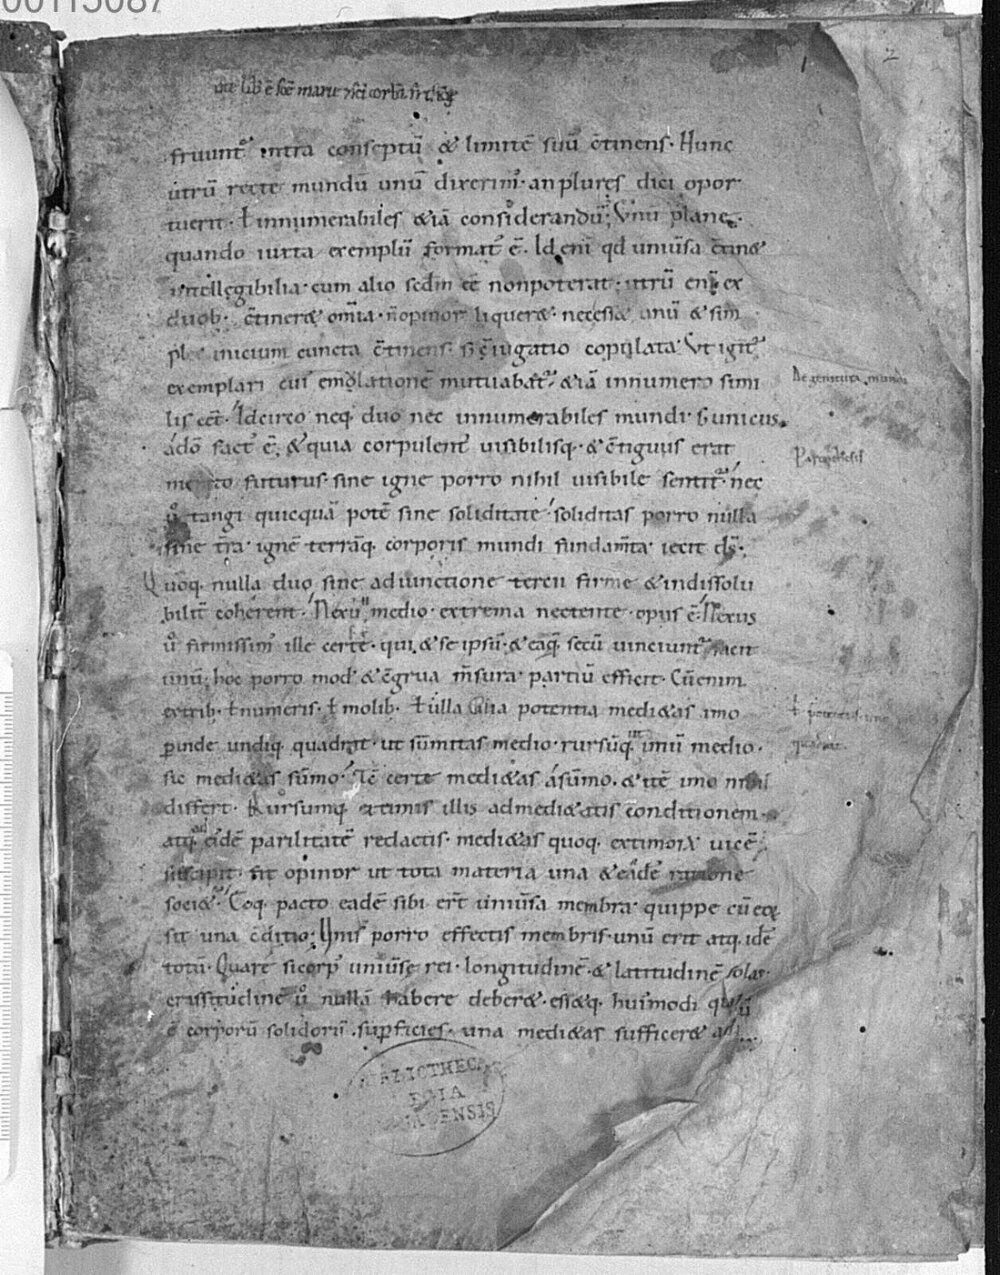 00115087
2
iste lib̄ ē sc̄e marie ⁊ sc̄i corb̄
fruunt᷑ intra conseptū & limitē suū c̄tinens· Hunc
utrū recte mundū unū dixerim᷒· an plures dici opor
tuerit· ł innumerabiles &iā considerandū; Vnū plane·
quando iuxta exemplū format᷒ ē· Id eni qd uniūsa c̄tin&
intellegibilia· cum alio secdm eē non poterat· utrū eni ex
duob· c̄tiner& om̄ia· n̄ opinor liquer&· necesse unū & sim
plex inicium cuncta c̄tinens· s; c̄iugatio copulata· Vt igit᷑
exemplari cui᷒ emolationē mutuabat᷑· &iā innumero simi
lis eēt· Idcirco neq; duo nec innumerabiles mundi· s; unicus
a dō fact᷒ ē; & quia corpulent᷒ uisibilisq· & c̄tiguus erat
merito futurus· sine igne porro nihil uisibile sentit᷑· nec
u̾ tangi quicquā potē sine soliditate· soliditas porro nulla
sine tr̄a· ignē terrāq· corporis mundi fundam̄ta iecit ds̄·;
Quōq· nulla duo sine adiunctione tercii firme & indissolu
bilit̄ coherent· Nexu medio· extrema nectente· opus ē· Nexus
u̾ firmissim᷒ ille certe· qui & se ipsū· & eaq secū uinciunt᷑ facit
unū· hoc porro mod᷒ & c̄grua m̄sura· partiū efficit· Cū enim
ex trib· ł numeris· ł molib· ł ulla alia potentia medi&as imo
p̱inde undiq quadrat· ut sūmitas medio· rursūq imū medio·
sic medi&as sūmo· Itē certe medi&as a sūmo· & itē imo nihil
differt· Rursumq extimis illis ad medi&atis conditionem·
atq ad eādē parilitatē redactis· medi&as quoq extimoꝝ uicē
suscipit· fit opinor ut tota materia una & eadē ratione
soci&᷑· Eoq pacto eadē sibi erūt uniūsa membra· quippe cū eoꝝ
sit una c̄ditio; Unis porro effectis membris· unū erit atq idē
totū· Quare si corp᷒ uniūse rei· longitudinē & latitudinē solā·
crassitudinē u̾ nullā habere deber&· ess&q· hui᷒modi
ē corporū solidorū supficies· una medi&as sufficer&
De genitura mundi
BIBLIOTHECA
REGIA
MONACENSIS